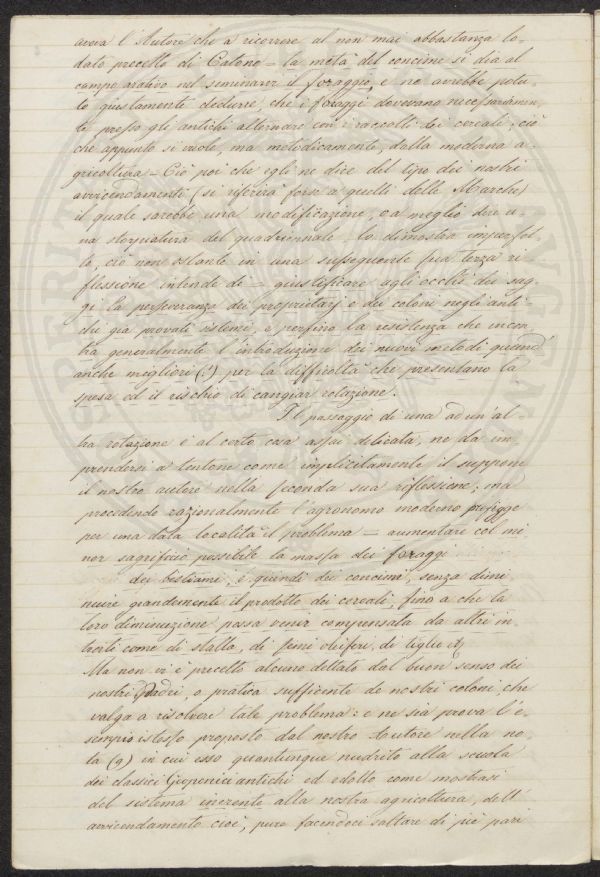 aveva l'Autore che a ricorrere al non mai abbastanza lo-
dato precetto di Catone = la metà del concime si dia al
campo arativo nel seminarvi il foraggio e ne avrebbe potu-
to giustamente dedurre, che i foraggi dovevano necessariamen-
te presso gli antichi alternare con i raccolti dei cereali, ciò
che appunto si vuole, ma metodicamente, dalla moderna a-
gricoltura = Ciò poi che egli ne dice del tipo dei nostri
avvicendamenti (si riferirà forse a quelli delle Marche)
il quale sarebbe una modificazione, o a meglio dire u-
na storpiatura del quadriennale, lo dimostra imperfet-
to, ciò non ostante in una susseguente sua terza ri-
flessione intende di = giustificare agli occhi dei sag-
gi la perseveranza dei proprietarj e dei coloni negli anti-
chi già provati sistemi, e perfino la resistenza che incon-
tra generalmente l'introduzione dei nuovi metodi quand'
anche migliori (!) per la difficoltà che presentano la
spesa ed il rischio di cangiar rotazione.
Il passaggio di una ad un'al-
tra rotazione è al certo cosa assai delicata, ne da in-
prendersi a tentone come implicitamente il suppone
il nostro autore nella seconda sua riflessione; ma
procedendo razionalmente l'agronomo moderno prefigge
per una data località il problema = aumentare col mi
nor sagrificio possibile la massa dei foraggi
dei bestiami, e quindi dei concimi, senza dimi
nuire grandemente il prodotto dei cereali; fino a che la
loro diminuzione possa venir compensata da altri in
troiti come di stalla, di semi oleiferi, di tiglio &
Ma non vi è precetto alcuno dettato dal buon senso dei
nostri Padri, o pratica sufficiente de nostri coloni, che
valga a risolvere tale problema: e ne sia prova l'e-
sempio istesso proposto dal nostro Autore nella no
ta (9) in cui esso quantunque nudrito alla scuola
dei classici Geoponici antichi ed edotto come mostrasi
del sistema inerente alla nostra agricoltura, dell'
avvicendamento cioè, pure facendoci saltare di piè pari